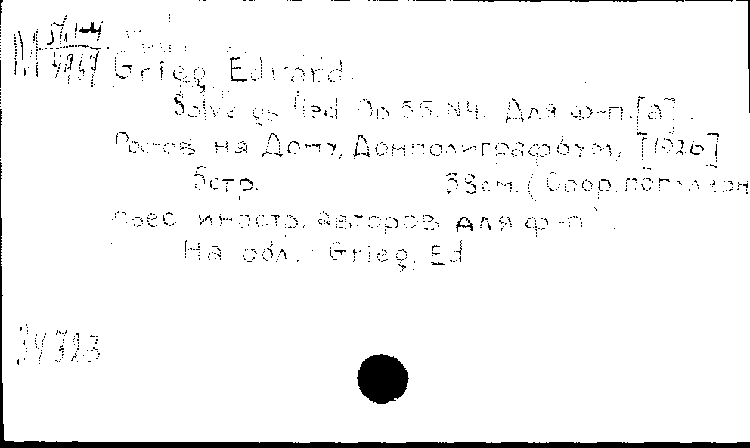 М 57.1-4
4767
Grieg, Edvard.
Solveigs lied Op 55. N4. Для ф-п.[а].
Ростов на Дону, Донполиграфбум, [1926]
5стр. 38см. (Сбор. популярн
пьес иностр. авторов для ф-п).
На обл.: Grieg, Ed
34323